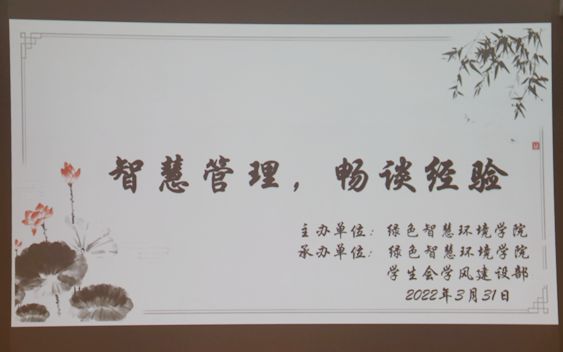 智慧管理，畅谈经验
主办单位：绿色智慧环境学院
承办单位：绿色智慧环境学院
学生会学风建设部
2022年3月31日